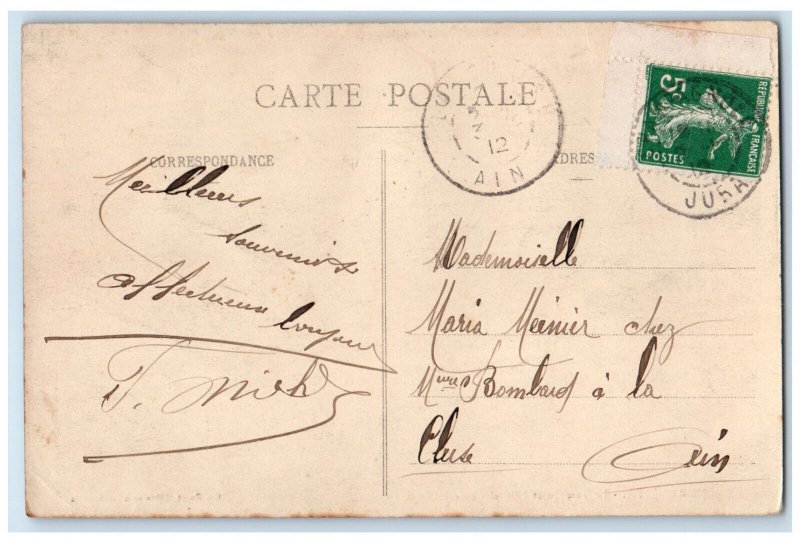 CARTE POSTALE
CORRESPONDANCE
Meilleurs
souvenirs
affectueux bonjour
5
3
12
AIN
5c
REPUBLIQUE FRANÇAISE
POSTES
JURA
Mademoiselle
Maria Meinier chez
Mme Bombard à la
Cluse Ain